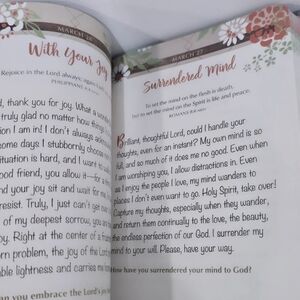 MARCH 26
With Your Joy
Rejoice in the Lord always; again
PHILIPPIANS 4:4
thank you for joy. What a
truly glad no matter how things
ion I am in! I don't always
some days I stubbornly choose
situation is hard, and I want to
good friend, you allow it—for
nd your joy sit and wait for my
resist. Truly, I just can't get over
t of my deepest sorrow, you are
y. Right at the center of a
problem, the joy of the Lord
able lightness and carries me
an you embrace the Lord's jo
MARCH 27
Surrendered Mind
To set the mind on the flesh is death,
but to set the mind on the Spirit is life and peace.
ROMANS 8:6
Brilliant, thoughtful Lord, could I handle your
thoughts, even for an instant? My own mind is so
full, and so much of it does me no good. Even when
I am worshiping you, I allow distractions in. Even
as I enjoy the people I love, my mind wanders to
places I don't even want to go. Holy Spirit, take over!
Capture my thoughts, especially when they wander,
and return them continually to the love, the beauty,
the endless perfection of our God. I surrender my
mind to your will. Please, have your way.
How have you surrendered your mind to God?